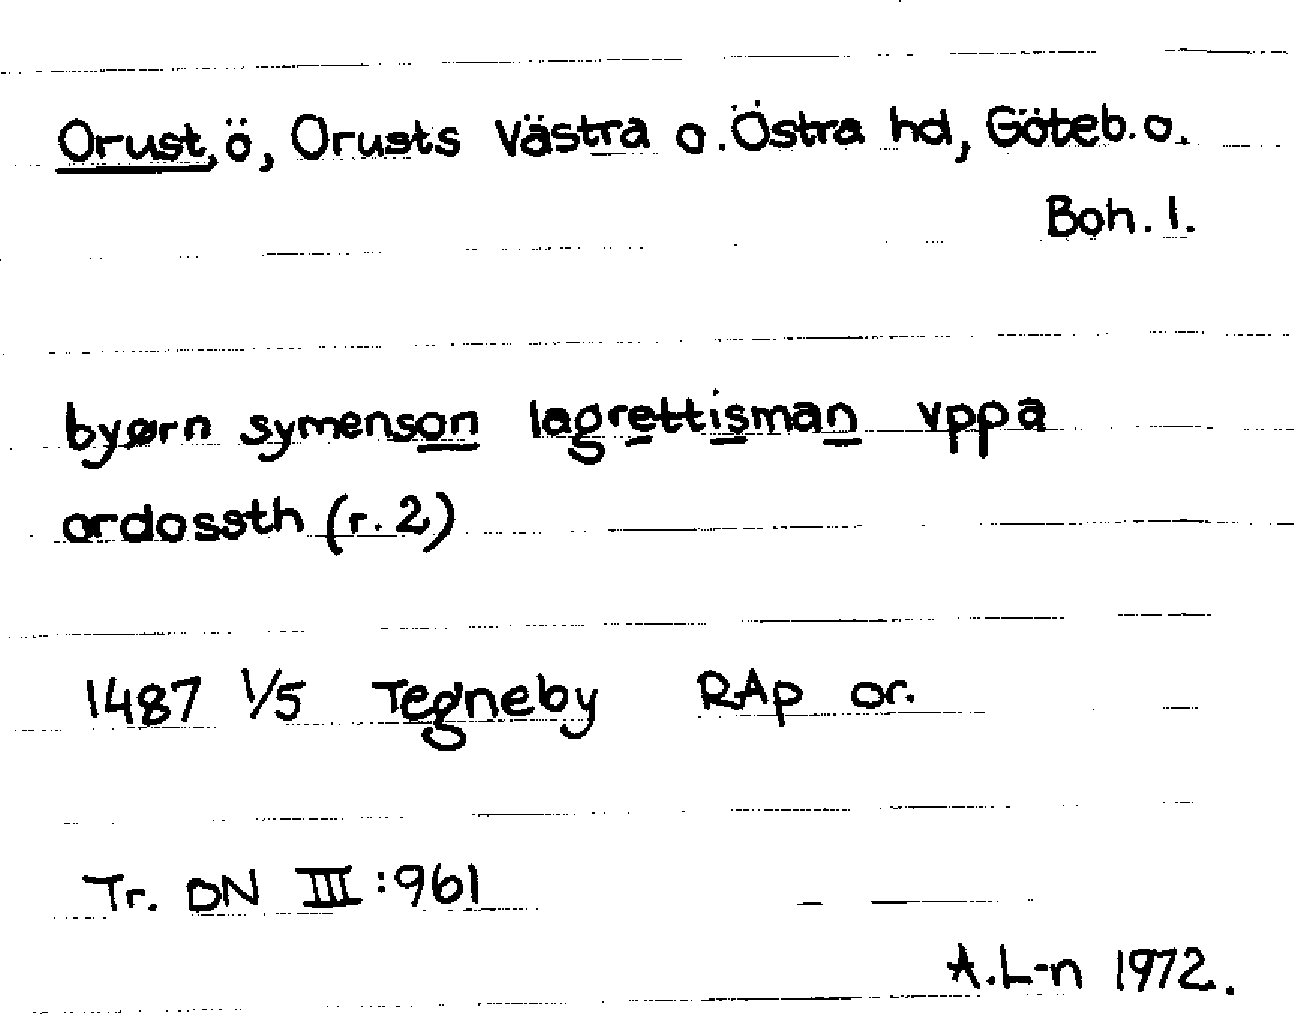 Orust, ö, Orusts Västra o. Östra hd, Göteb. o.
Boh. l.
byørn symenson lagrettisman vppa
ordossth (r. 2)
1487 1/5 Tegneby RAp or.
Tr. DN III:961
A.L-n 1972.